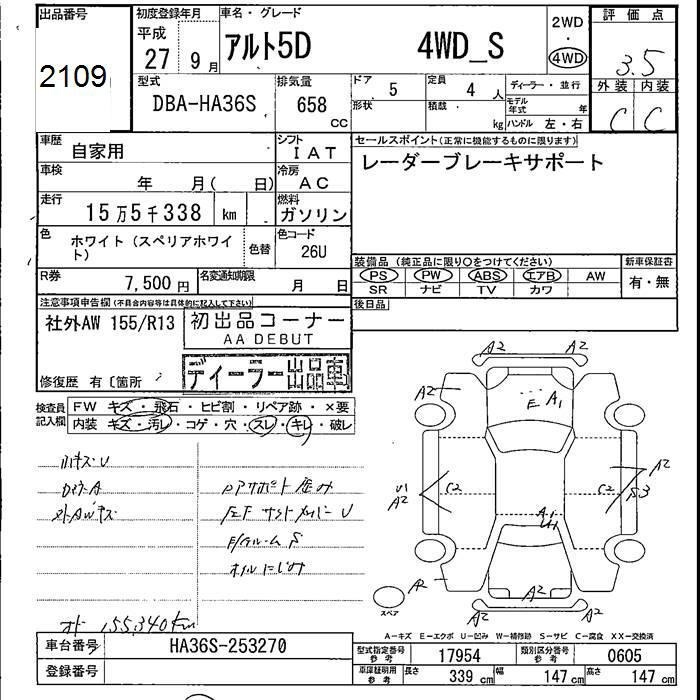 出品番号 初度登録年月 車名・グレード 2WD 評価点
平成 4WD
2109 27 9月 アルト5D 4WD_S 3.5
型式 排気量 ドア 5 定員 4 人 ディーラー・並行 外装 内装
DBA-HA36S 658 CC 形状 積載 kg モデル年式 年 C C
ハンドル 左・右
車歴 自家用 シフト IAT セールスポイント(正常に機能するものに限ります)
車検 年 月( 日) 冷房 AC レーダーブレーキサポート
走行 15万5千338 km 燃料 ガソリン
色 ホワイト(スペリアホワイト) 色替 色コード 26U
装備品(純正品に限り○をつけてください) 新車保証書
R券 7,500円 名変通知期限 月 日 PS PW ABS エアB AW 有・無
SR ナビ TV カワ
注意事項申告欄(不具合内容等は具体的に記入して下さい) 後日品
社外AW 155/R13 初出品コーナー
AA DEBUT
修復歴 有〔箇所 ディーラー出品車
検査員記入欄 FW キズ・飛石・ヒビ割・リペア跡・×要
内装 キズ・汚レ・コゲ・穴・スレ・キレ・破レ
A2 A2
A2 E A1 A2
U1 A2 C2 C2 S3 A2
A1
A2 A2
A2 A2
スペア
オド 155,340km
A-キズ E-エクボ U-凹み W-補修跡 S-サビ C-腐食 XX-交換済
車台番号 HA36S-253270 型式指定番号 参考 17954 類別区分番号 参考 0605
登録番号 車庫証明用 参考 長さ 339 cm 幅 147 cm 高さ 147 cm